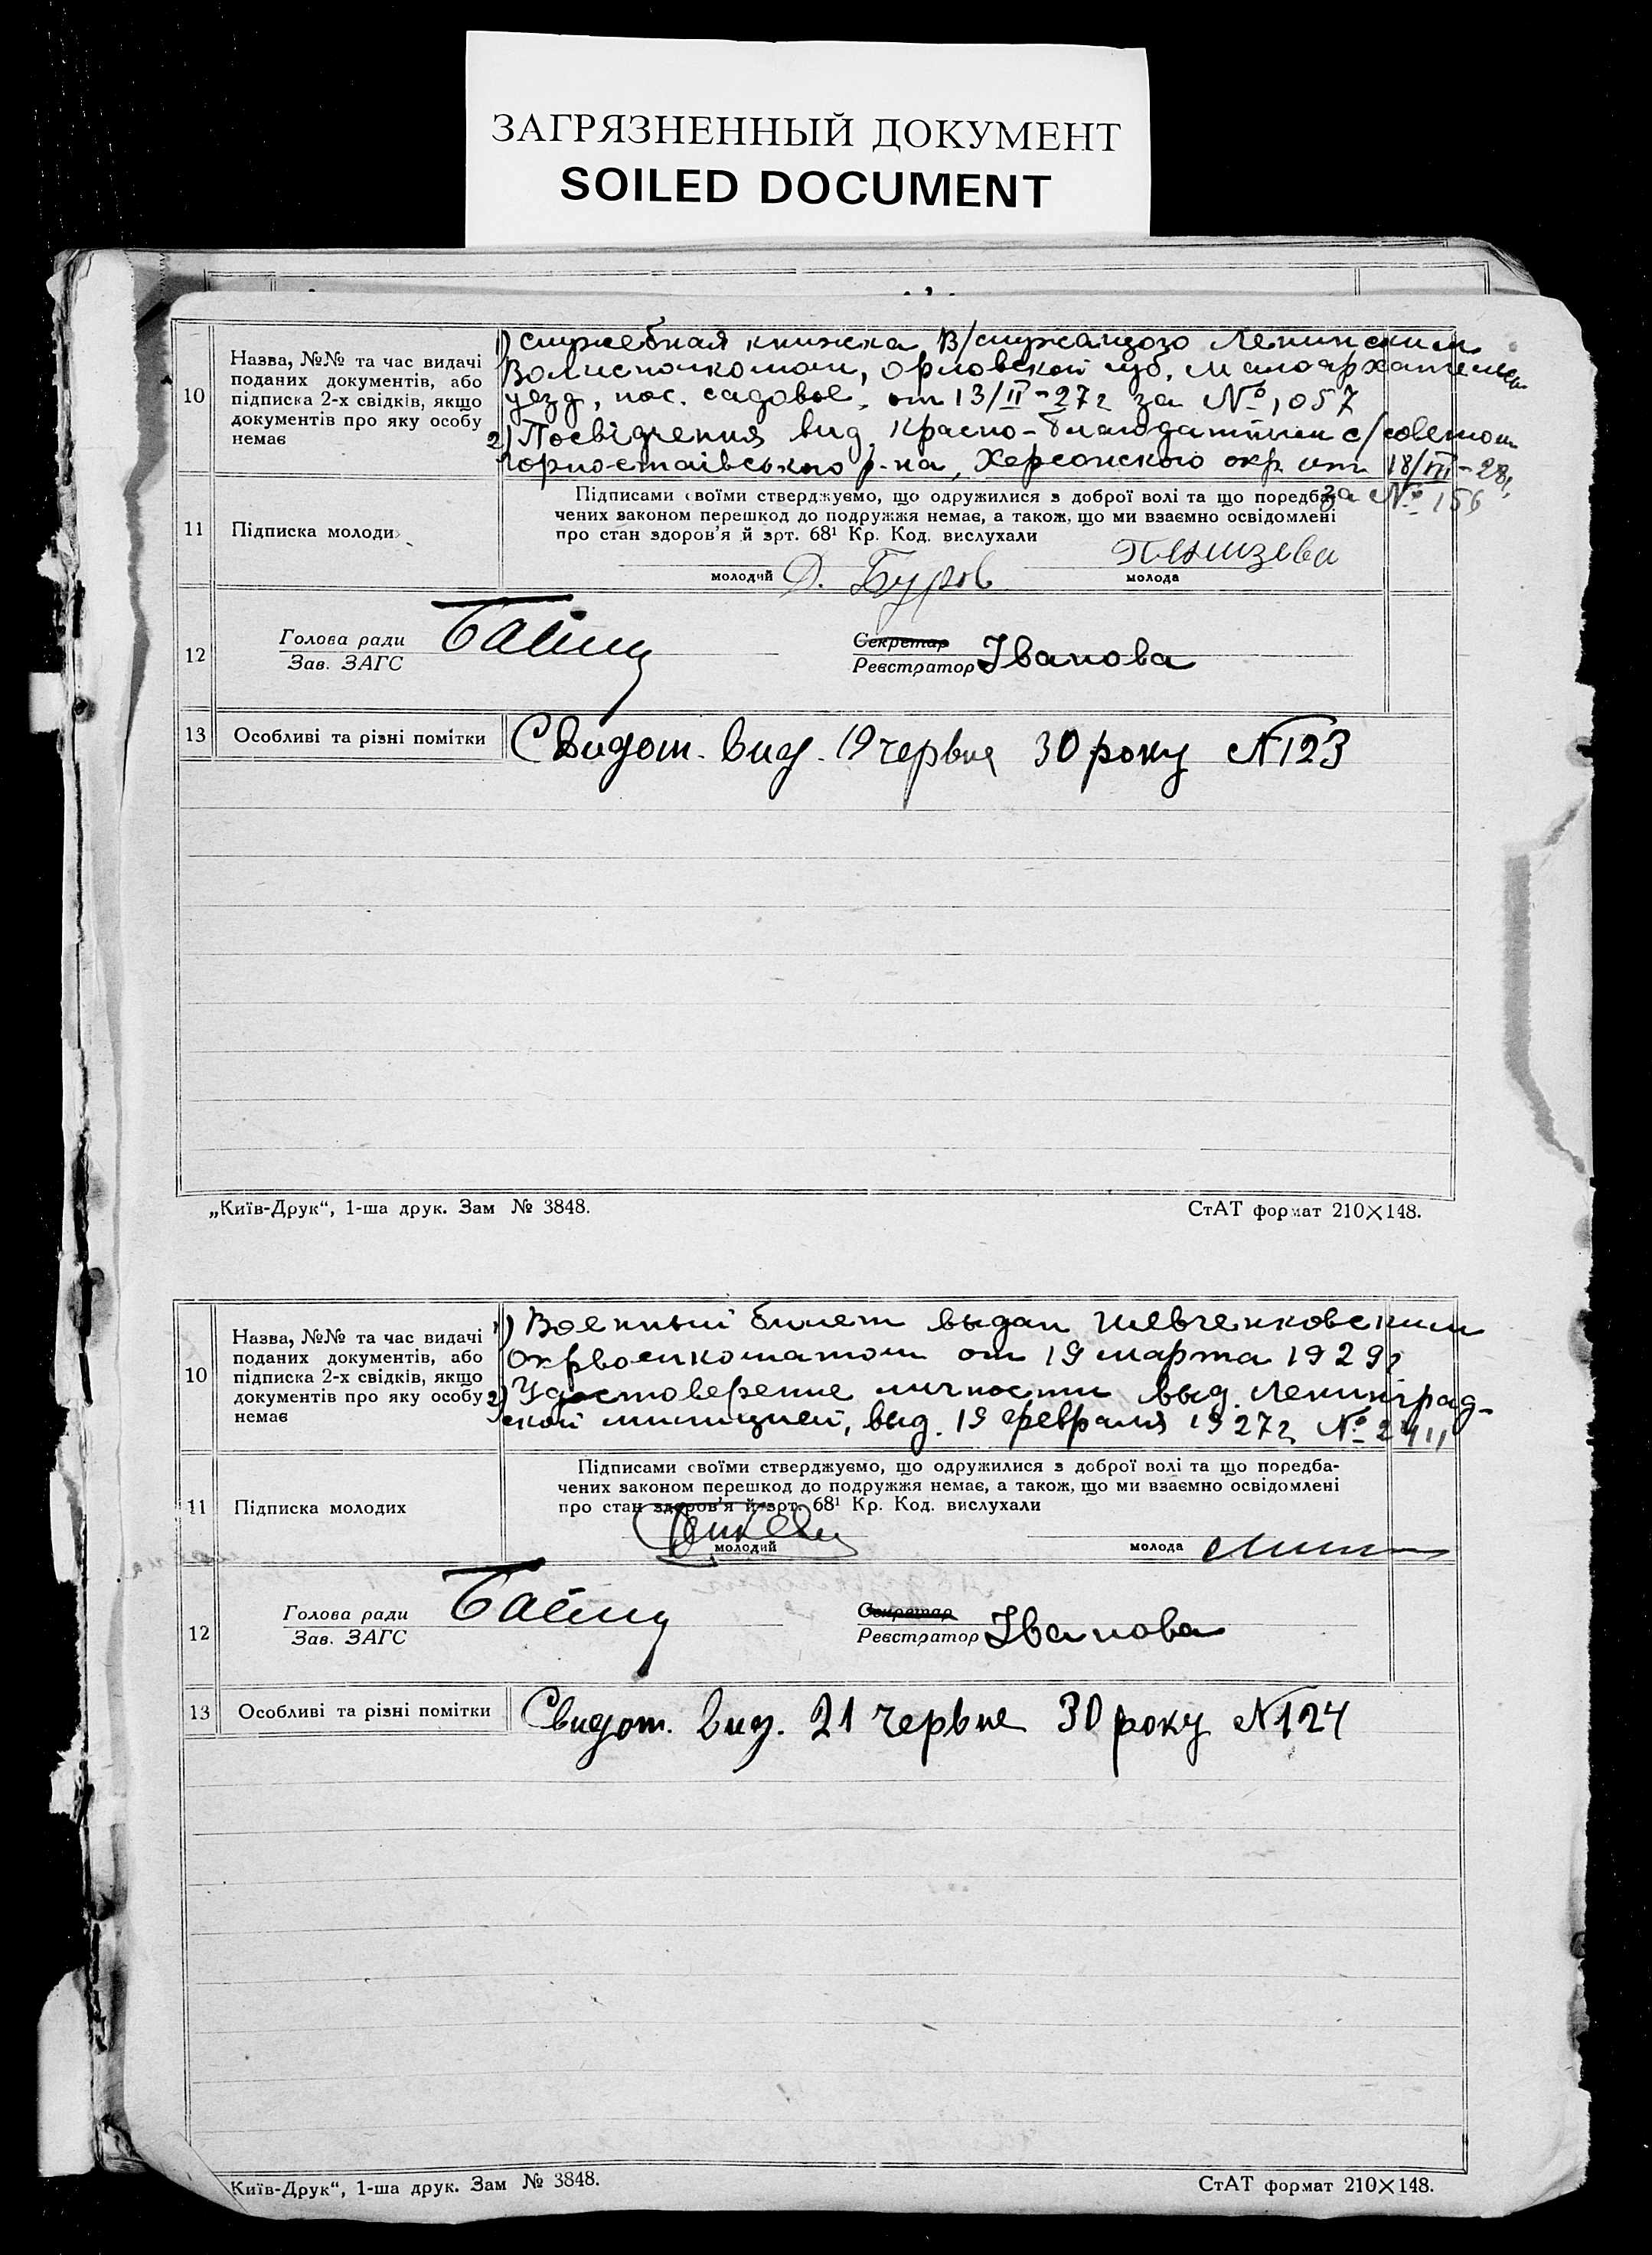 ЗАГРЯЗНЕННЫЙ ДОКУМЕНТ
SOILED DOCUMENT
10
Назва, №№ та час видачі
поданих документів, або
підписка 2-х свідків, якщо
документів про яку особу
немає
1) служебная книжка В/служащого Ленинским
Волисполкомом, Орловской губ. Малоархангельск
уезд, пос. садовое, от 13/II-27г за № 1057
2) Посвідчення вид. Красно-благодатним с/советом
Горностаївського р-на, Херсонского окр. от 18/VII-28г,
за № 156
11
Підписка молоди
Підписами своїми стверджуємо, що одружилися з доброї волі та що поредба-
чених законом перешкод до подружжя немає, а також, що ми взаємно освідомлені
про стан здоров'я й зрт. 68¹ Кр. Код. вислухали
молодий Д. Буров
молода
12
Голова ради
Зав. ЗАГС
Секретар
Реєстратор Іванова
13
Особливі та різні помітки
Свидот. вид. 19 червня 30 року N123
„Київ-Друк“, 1-ша друк. Зам № 3848.
СтАТ формат 210×148.
10
Назва, №№ та час видачі
поданих документів, або
підписка 2-х свідків, якщо
документів про яку особу
немає
1) Военный билет выдан Шевченковским
Окрвоенкоматом от 19 марта 1929г
2) Удостоверение личности выд. Ленинград-
ской милицией, выд. 19 февраля 1927г № 2411
11
Підписка молодих
Підписами своїми стверджуємо, що одружилися з доброї волі та що поредба-
чених законом перешкод до подружжя немає, а також, що ми взаємно освідомлені
про стан здоров'я й зрт. 68¹ Кр. Код. вислухали
молодий
молода
12
Голова ради
Зав. ЗАГС
Секретар
Реєстратор Іванова
13
Особливі та різні помітки
Свидот. вид. 21 червня 30 року N124
Київ-Друк“, 1-ша друк. Зам № 3848.
СтАТ формат 210×148.